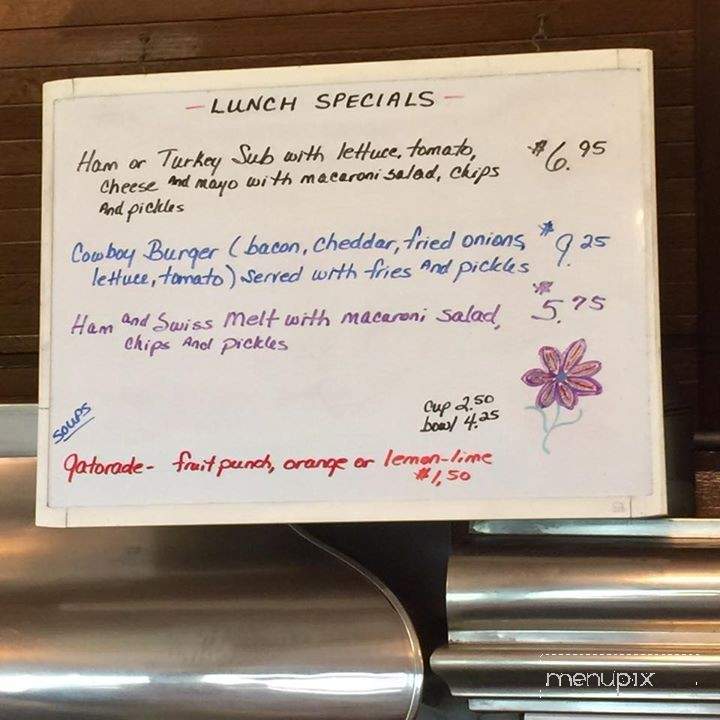 - LUNCH SPECIALS -
Ham or Turkey Sub with lettuce, tomato, $6.95
cheese and mayo with macaroni salad, chips
And pickles
Cowboy Burger (bacon, cheddar, fried onions, $9.25
lettuce, tomato) served with fries And pickles
Ham and Swiss Melt with macaroni salad, $5.75
chips And pickles
SOUPS
cup 2.50
bowl 4.25
gatorade - fruit punch, orange or lemon-lime
$1.50
menupix